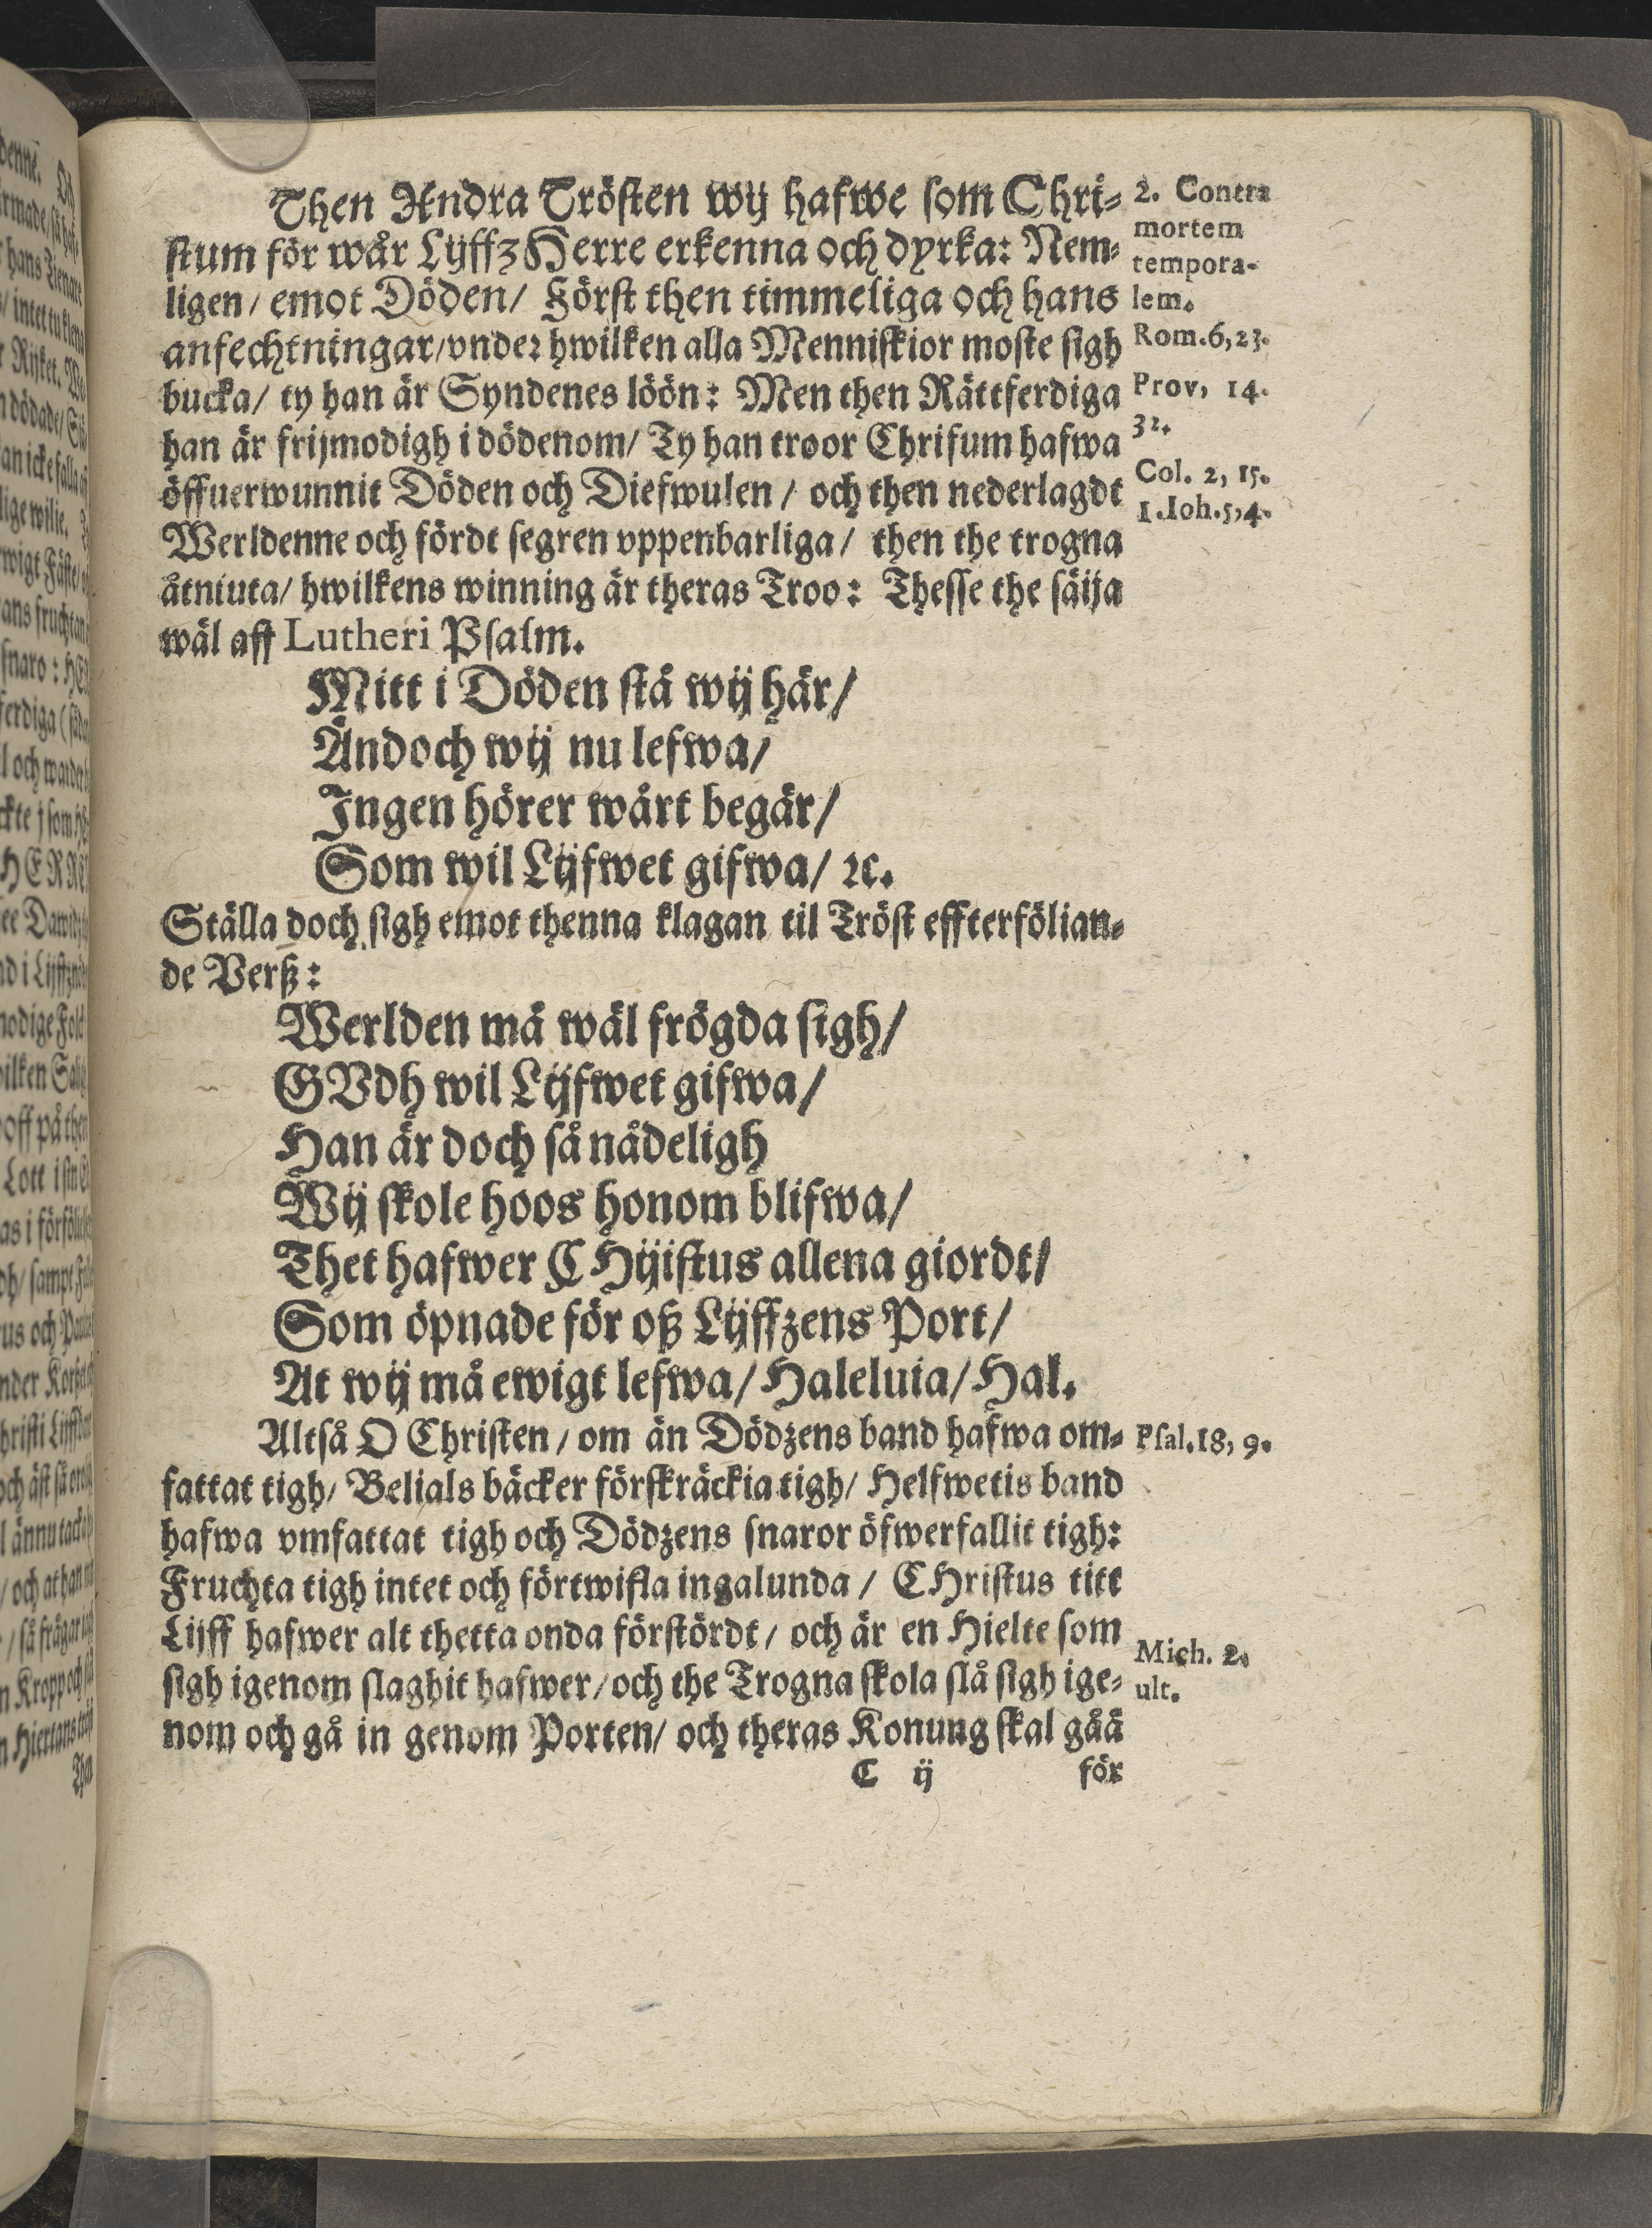 Then Andra Trösten wij hafwe som Chri-
stum för wår LijffzHerre erkenna och dyrka: Nem-
ligen/ emot Döden/ Först then timmeliga och hans
anfechtningar/vnder hwilken alla Menniskior moste sigh
bucka/ ty han är Syndenes löön: Men then Rättferdiga
han är frijmodigh i dödenom/ Ty han troor Chrifum hafwa
öffuerwunnit Döden och Diefwulen/ och then nederlagdt
Werldenne och fördt segren vppenbarliga/ then the trogna
åtniuta/ hwilkens winning är theras Troo: Thesse the säija
wäl aff Lutheri Psalm.
2. Contra
mortem
tempora-
lem.
Rom.6,23.
Prov, 14.
32.
Col. 2, 15.
1.Ioh.5,4.
Mitt i Döden stå wij här/
Ändoch wij nu lefwa/
Ingen hörer wårt begär/
Som wil Lijfwet gifwa/ ꝛc.
Ställa doch sigh emot thenna klagan til Tröst effterfölian-
de Verß:
Werlden må wäl frögda sigh/
GVdh wil Lijfwet gifwa/
Han är doch så nådeligh
Wij skole hoos honom blifwa/
Thet hafwer CHijistus allena giordt/
Som öpnade för oß Lijffzens Port/
At wij må ewigt lefwa/ Haleluia/ Hal.
Altså O Christen/ om än Dödzens band hafwa om-
fattat tigh/ Belials bäcker förskräckia tigh/ Helfwetis band
hafwa vmfattat tigh och Dödzens snaror öfwerfallit tigh:
Fruchta tigh intet och förtwifla ingalunda/ CHristus titt
Lijff hafwer alt thetta onda förstördt/ och är en Hielte som
sigh igenom slaghit hafwer/och the Trogna skola slå sigh ige-
nom och gå in genom Porten/ och theras Konung skal gåå
Psal.18, 9.
Mich. 2.
ult.
C ij
för